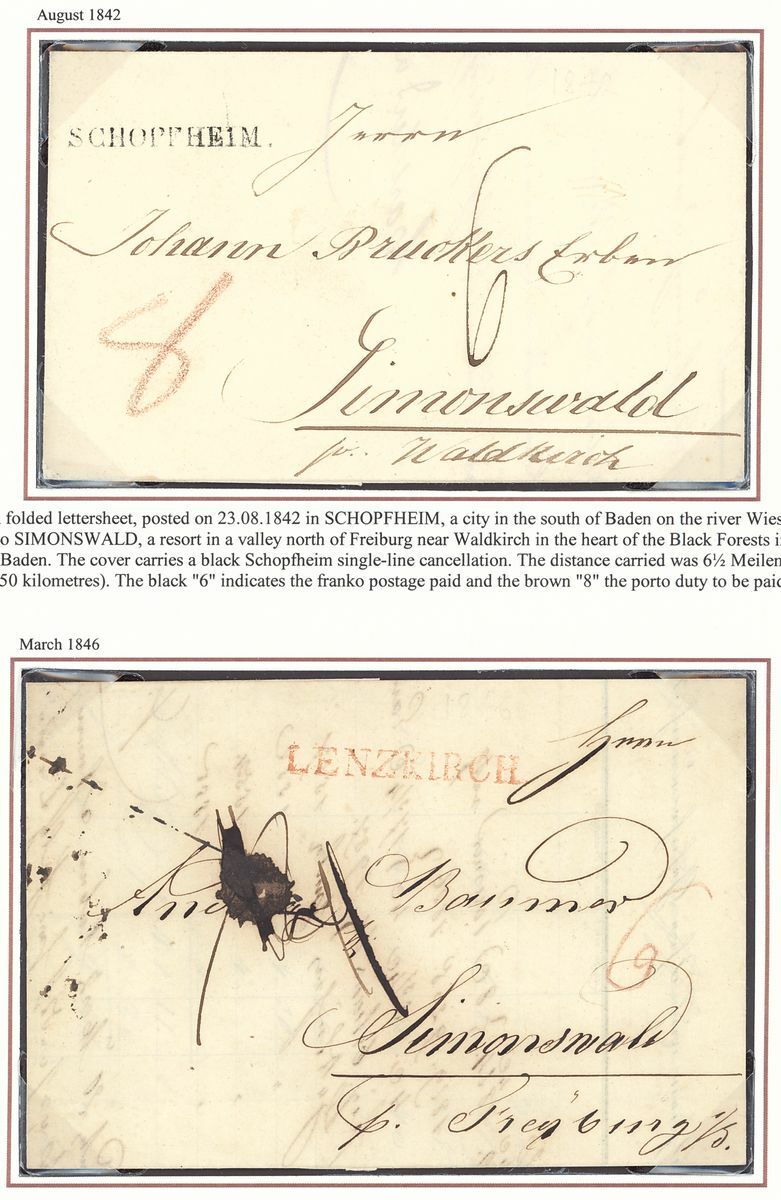 August 1842
SCHOPFHEIM.
Herrn
Johann Bruckers Erben
6
8
Simonswald
pr. Waldkirch
folded lettersheet, posted on 23.08.1842 in SCHOPFHEIM, a city in the south of Baden on the river Wies
o SIMONSWALD, a resort in a valley north of Freiburg near Waldkirch in the heart of the Black Forests i
Baden. The cover carries a black Schopfheim single-line cancellation. The distance carried was 6½ Meilen
50 kilometres). The black "6" indicates the franko postage paid and the brown "8" the porto duty to be paid
March 1846
LENZKIRCH
Herrn
Baumer
6
Simonswald
p. Freyburg i/B.